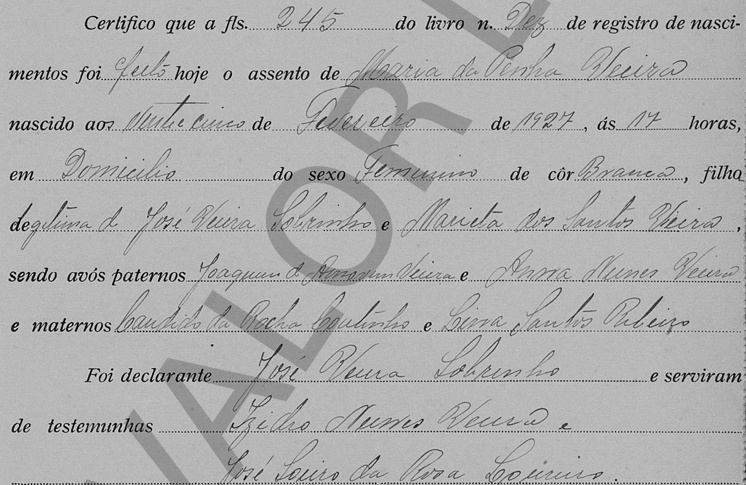 Certifico que a fls. 245 do livro n. Dez de registro de nasci-
mentos foi feito hoje o assento de Maria da Penha Vieira
nascido aos Vinte cinco de Fevereiro de 1927, ás 17 horas,
em Domicilio do sexo Feminino de côr Branca, filha
legitima de José Vieira Sobrinho e Marieta dos Santos Vieira,
sendo avós paternos Joaquim de Vieira e Anna Nunes Vieira
e maternos Candido da Rocha Coutinho e Santos Ribeiro
Foi declarante José Vieira Sobrinho e serviram
de testemunhas Izidro Nunes Vieira e
José da Rosa Loureiro.
VALOR